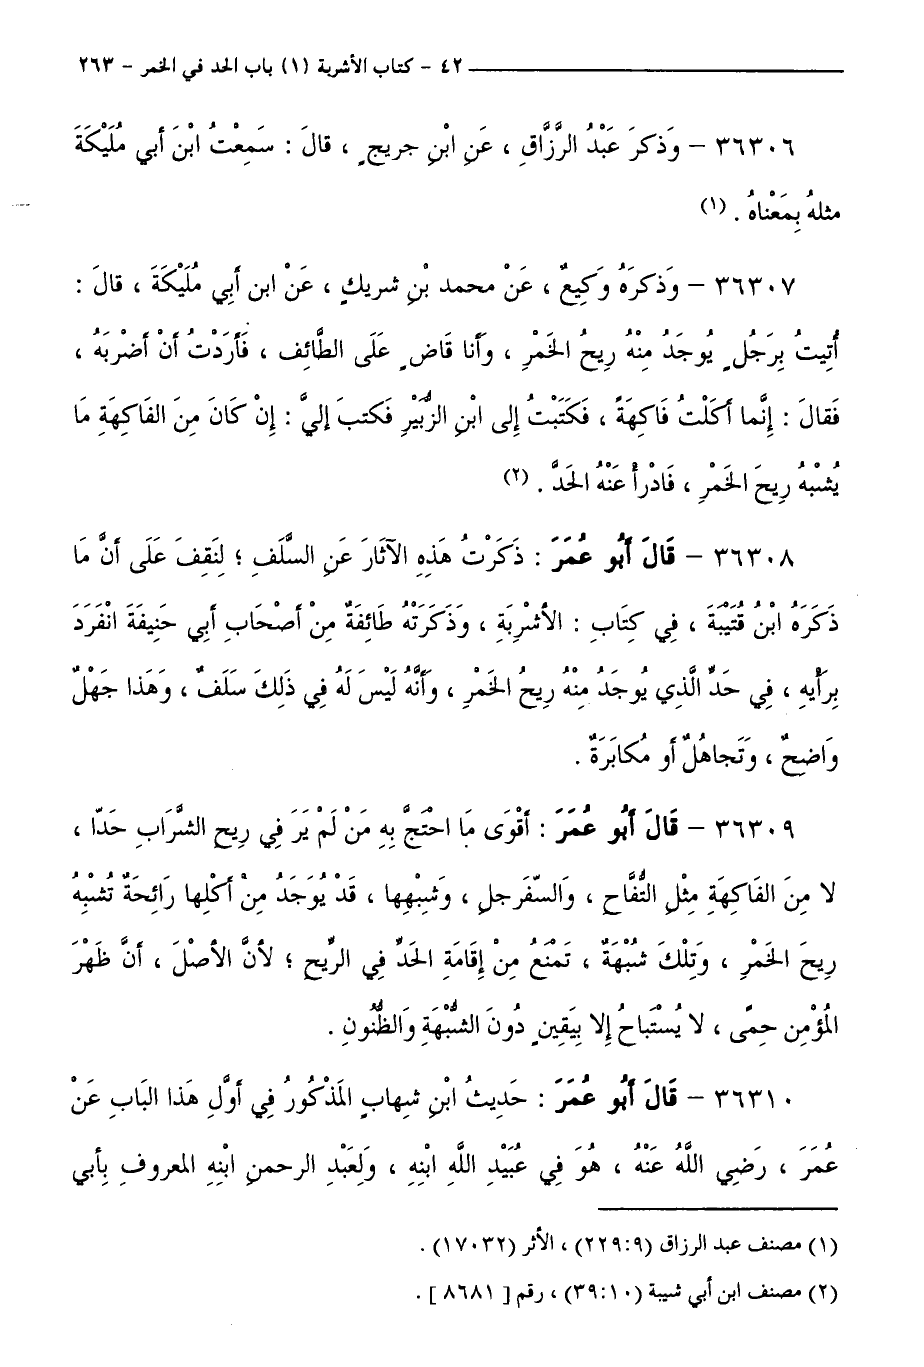 ٤٢ - كتاب الأشربة (١) باب الحد في الخمر - ٢٦٣
٣٦٣٠٦ - وَذكرَ عَبْدُ الرَّزَّاقِ ، عَنِ ابْنِ جريجٍ ، قالَ : سَمِعْتُ ابْنَ أبي مُلَيْكَةَ
مثلهُ بِمَعْناهُ . (١)
٣٦٣٠٧ - وَذكرَهُ وَكِيعٌ ، عَنْ محمد بْنِ شريكٍ ، عَنْ ابن أبي مُلَيْكَةَ ، قالَ :
أُتِيتُ بِرَجُلٍ يُوجَدُ مِنْهُ رِيحُ الخَمْرِ ، وَأنا قَاضٍ عَلَى الطَّائِف ، فَأرَدْتُ أنْ أضْرِبَهُ ،
فَقالَ : إنَّما أكَلْتُ فَاكِهَةً ، فَكَتَبْتُ إلى ابْنِ الزُّبَيْرِ فَكتبَ إليَّ : إنْ كَانَ مِنَ الفَاكِهَةِ مَا
يُشْبِهُ رِيحَ الخَمْرِ ، فَادْرأْ عَنْهُ الحَدَّ . (٢)
٣٦٣٠٨ - قَالَ أَبُو عُمَرَ : ذَكَرْتُ هَذِهِ الآثَارَ عَنِ السَّلَفِ ؛ لِنَقِفَ عَلَى أنَّ مَا
ذَكَرَهُ ابْنُ قُتَيْبَةَ ، فِي كِتَابِ : الأشْرِبَةِ ، وَذَكَرَتْهُ طَائِفَةٌ مِنْ أصْحَابِ أبي حَنِيفَةَ انْفَرَدَ
بِرَأيِهِ ، فِي حَدِّ الَّذي يُوجَدُ مِنْهُ رِيحُ الخَمْرِ ، وَأنَّهُ لَيْسَ لَهُ فِي ذَلِكَ سَلَفٌ ، وَهَذَا جَهْلٌ
وَاضِحٌ ، وَتَجاهُلٌ أو مُكابَرَةٌ .
٣٦٣٠٩ - قَالَ أَبُو عُمَرَ : أقْوَى مَا احْتَجَّ بِهِ مَنْ لَمْ يَرَ فِي رِيحِ الشَّرَابِ حَدّا ،
لا مِنَ الفَاكِهَةِ مِثْلِ التُّفَّاحِ ، وَالسَّفَرجلِ ، وَشِبْهِها ، قَدْ يُوَجَدُ مِنْ أكْلِها رَائِحَةٌ تُشْبِهُ
رِيحَ الخَمْرِ ، وَتِلْكَ شُبْهَةٌ ، تَمْنَعُ مِنْ إقَامَةِ الحَدِّ فِي الرِّيحِ ؛ لأنَّ الأصْلَ ، أنَّ ظَهْرَ
المُؤْمِنِ حِمًى ، لا يُسْتَباحُ إلا بِيَقِينٍ دُونَ الشُّبْهَةِ وَالظُّنُونِ .
٣٦٣١٠ - قَالَ أَبُو عُمَرَ : حَدِيثُ ابْنِ شِهابٍ المَذْكُورُ فِي أوَّلِ هَذا البَابِ عَنْ
عُمَرَ ، رَضِي اللَّهُ عَنْهُ ، هُوَ فِي عُبَيْدِ اللَّهِ ابْنِهِ ، وَلِعَبْدِ الرحمنِ ابْنِهِ المعروفِ بِأبي
(١) مصنف عبد الرزاق (٢٢٩:٩) ، الأثر (١٧٠٣٢) .
(٢) مصنف ابن أبي شيبة (٣٩:١٠) ، رقم [ ٨٦٨١ ] .